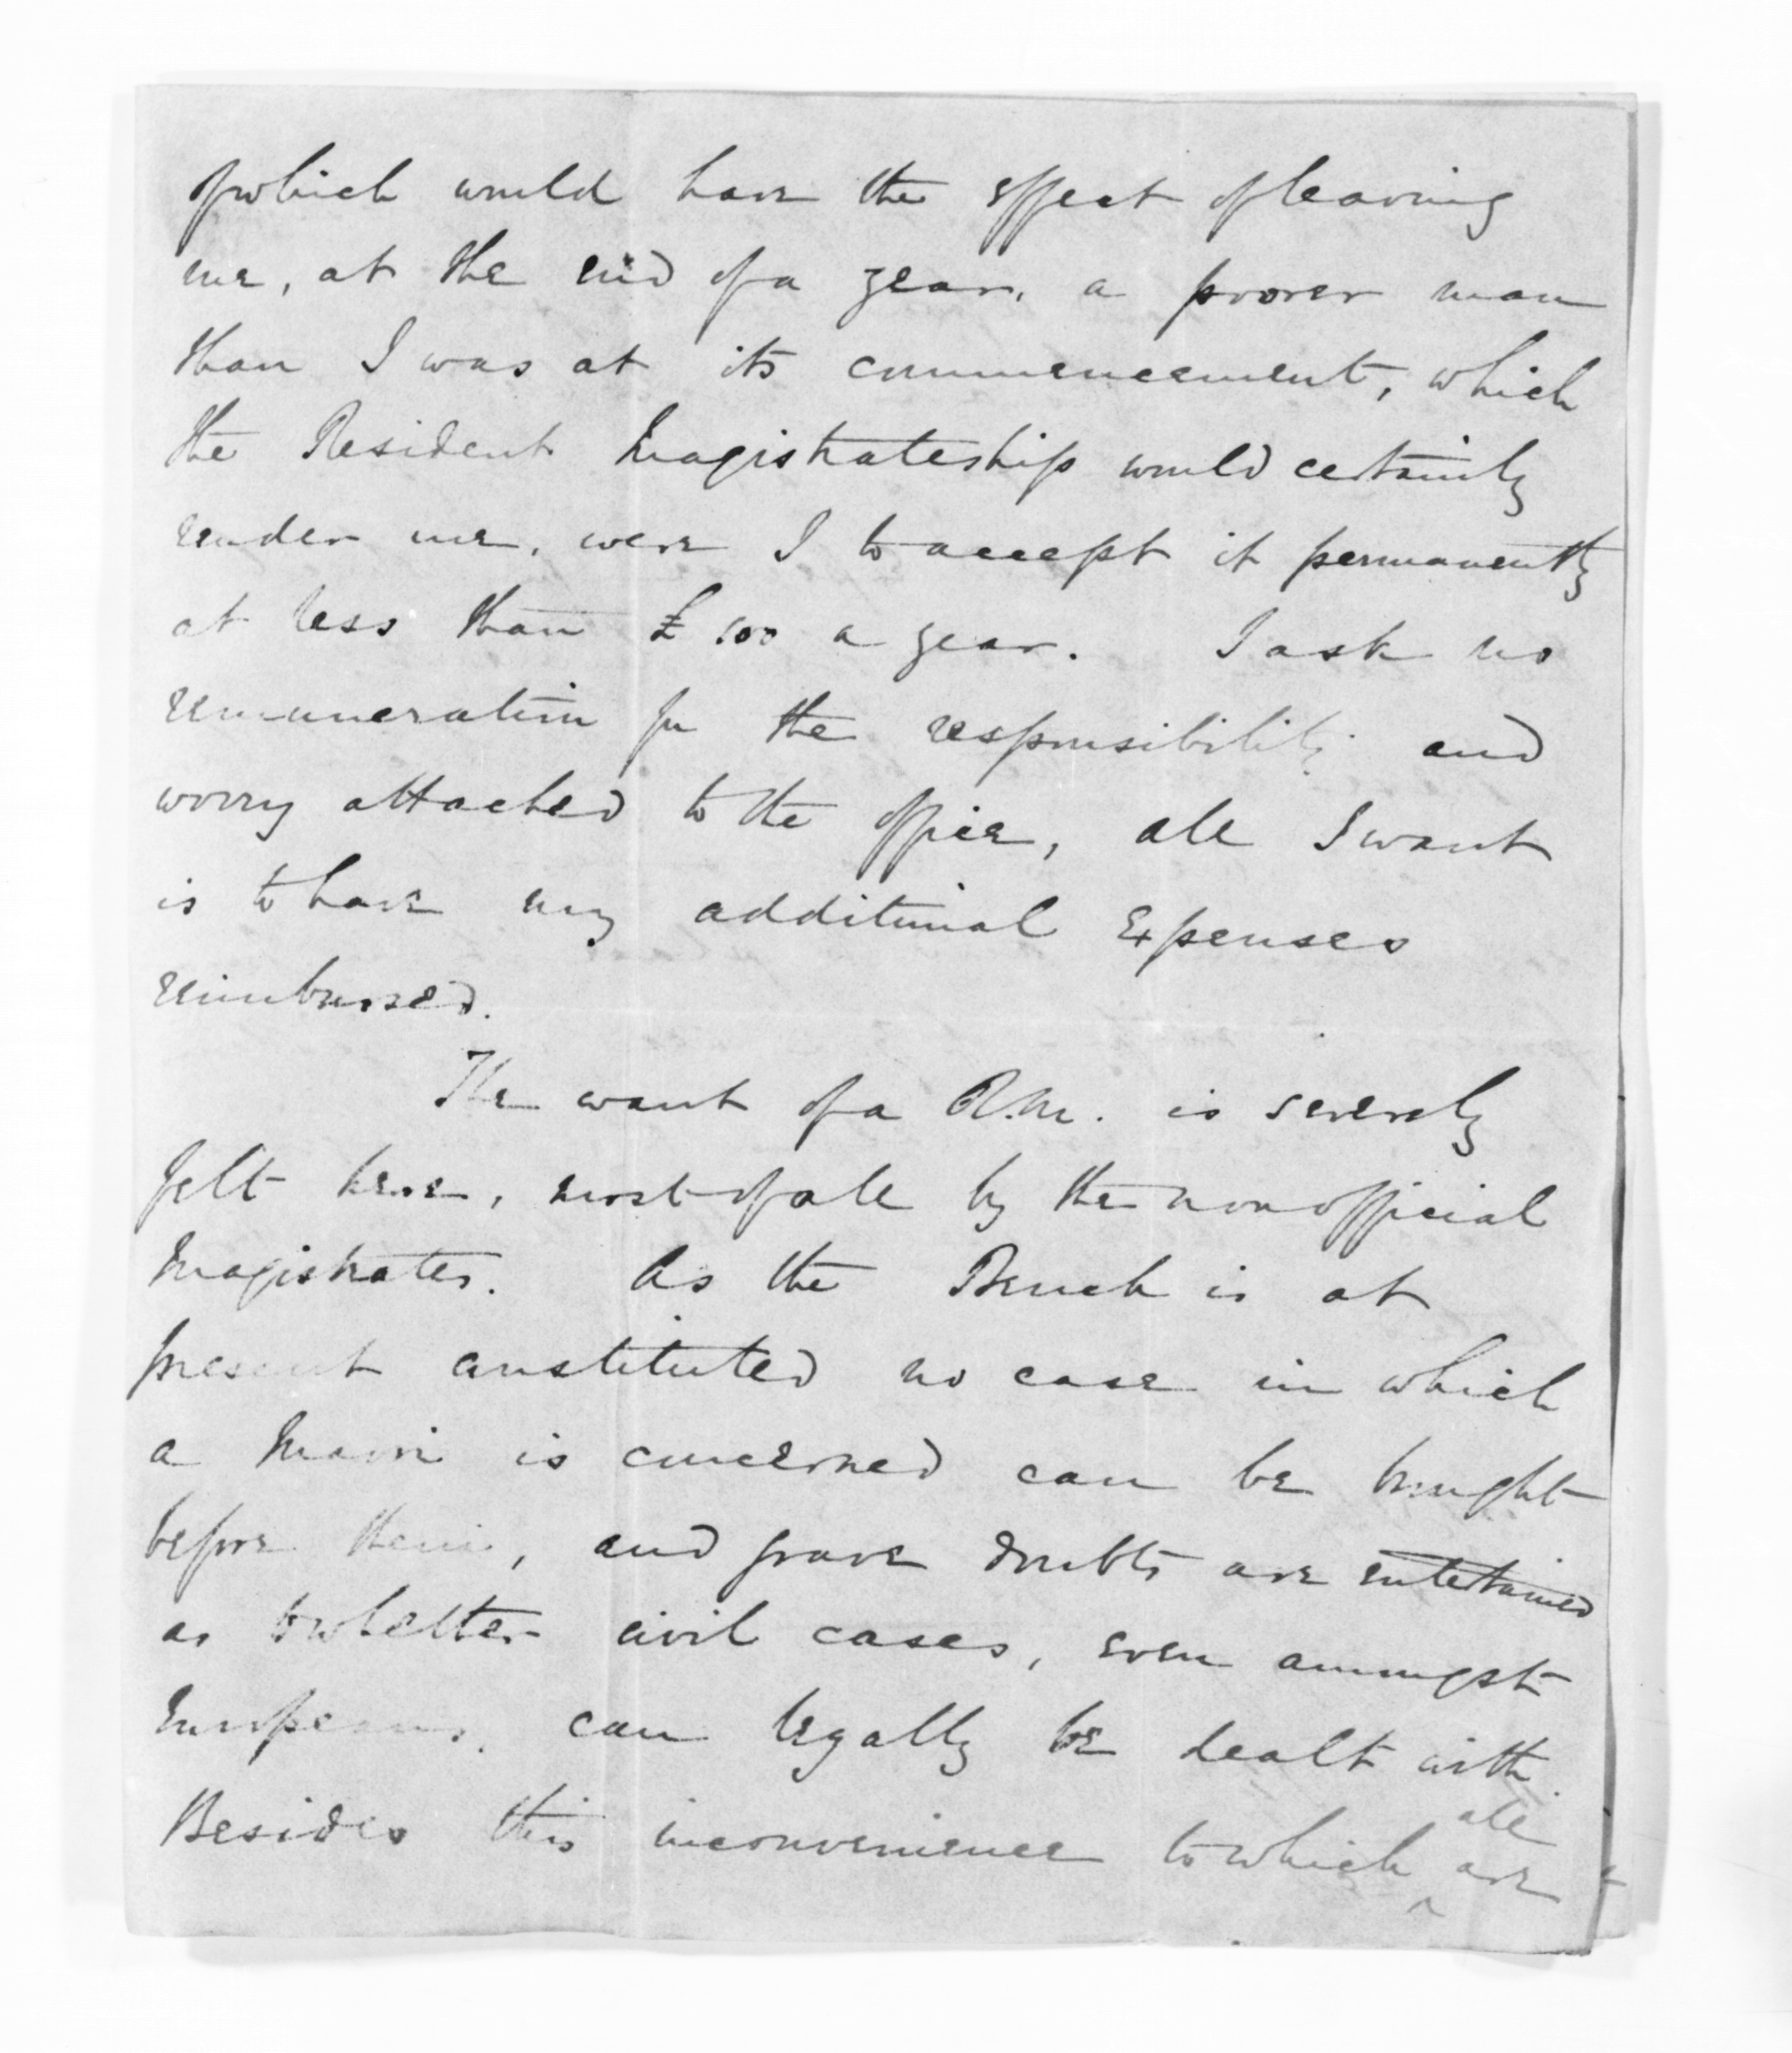 of which would have the effect of leaving
me, at the end of a year, a poorer man
than I was at its commencement, which
the Resident Magistrateship would certainly
render me, were I to accept it permanently
at less than £ 100 a year. I ask no
remuneration for the responsibility and
worry attached to the office, all I want
is to have my additional expenses
reimbursed.
The want of a R.M. is severely
felt here, most of all by the non official
Magistrates. As the Bench is at
present constituted no case in which
a Maori is concerned can be brought
before them, and grave doubts are entertained
as to whether civil cases, even amongst
Europeans, can legally be dealt with.
Besides this inconvenience to which all are